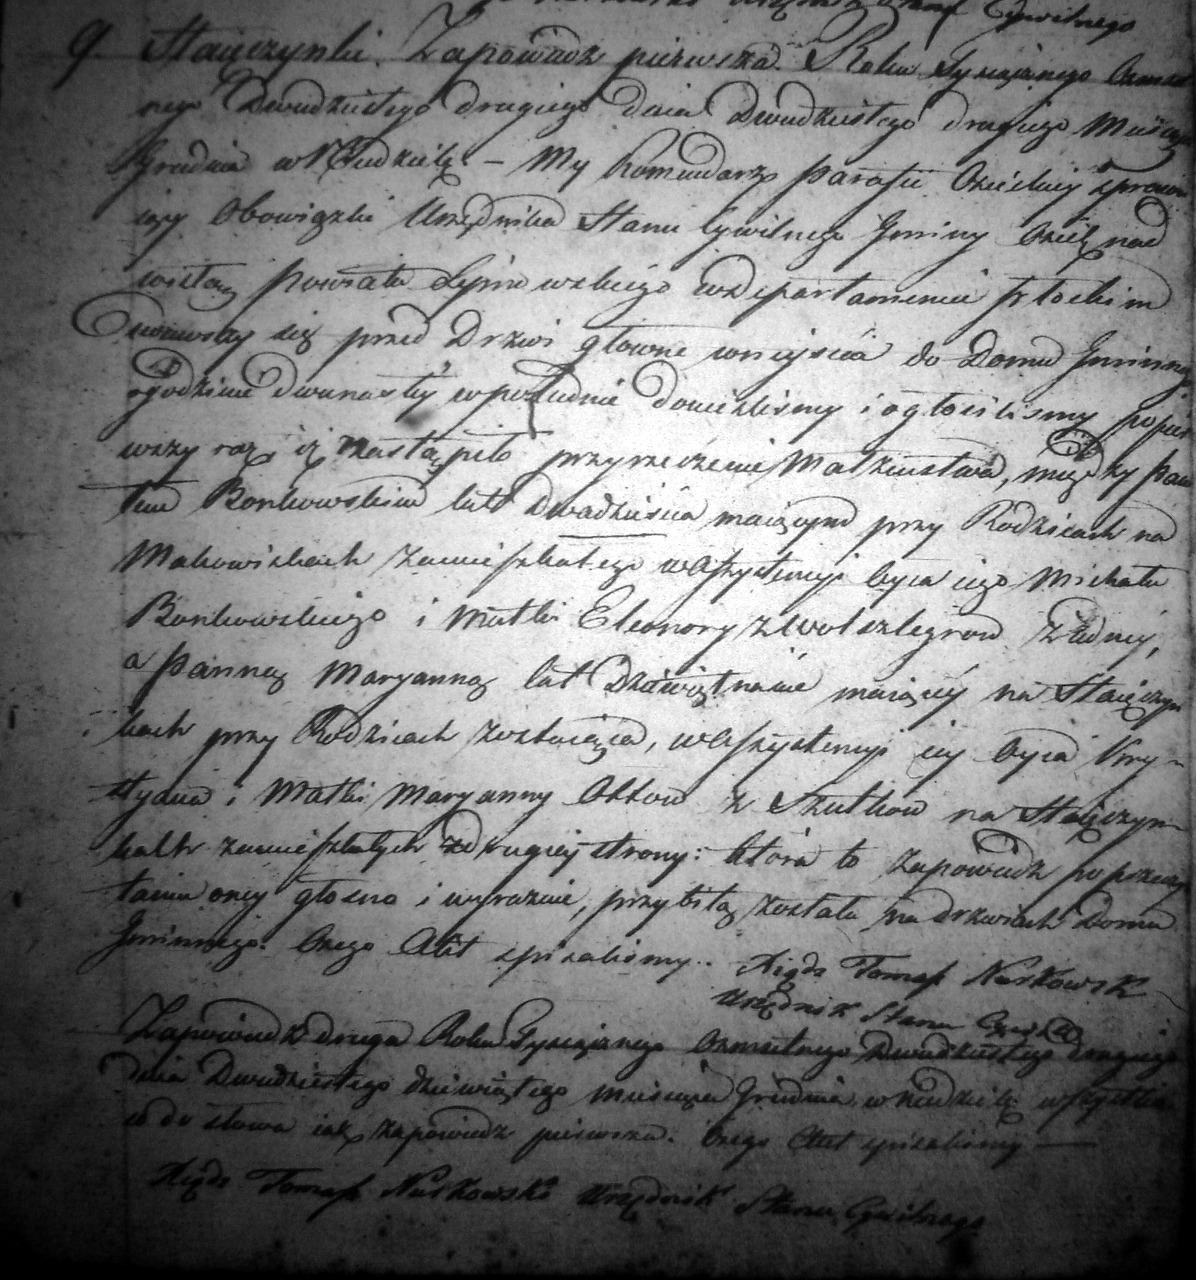 Stanu Cywilnego
9 Stajęczynki. Zapowiedz pierwsza. Roku Tysiącznego Osmset
nego Dwudziestego drugiego dnia Dwudziestego drugiego Miesiąca
Grudnia w Niedzielę – My Komendarz Parafii Osieckiey sprawu
iący Obowiązki Urzędnika Stanu Cywilnego Gminy nad
wisłą Powiatu w Departamencie Płockim
udawszy się przed Drzwi główne wniyścia do Domu Gminnego
ogodzinie dwunastey w południe donieśliśmy i ogłosiliśmy popier
wszy raz, iż nastąpiło przyrzeczenie Małżenstwa, między Paw
łem Bonkowskim latt Dwadzieścia maiącym przy Rodzicach na
Makowiskach zamieszkałego w Assystencyi Oyca iego Michała
Bonkowskiego i Matki Eleonory z
a Panną Maryanną lat Dziewiętnaście maiącey na Stajęczyn
kach przy Rodzicach zostaiąca, w Assystencyi iey Oyca Kry-
styana i Matki Maryanny Ottow z na Stajęczyn
kach zamieszkałych z drugiey strony: która to Zapowiedz po przeczy
taniu oney głosno i wyraznie, przybitą została na drzwiach Domu
Gminnego. Czego Akt spisaliśmy. Xiądz Tomasz Nutkowski
Urzędnik Stanu Cywil
Zapowiedz druga Roku Tysiącznego Osmsetnego Dwudziestego drugiego
dnia Dwudziestego dziewiątego miesiąca Grudnia w niedzielę wszystko
co do słowa iak zapowiedz pierwsza. Czego Akt spisaliśmy —
Xiądz Tomasz Nutkowski Urzędnik Stanu Cywilnego